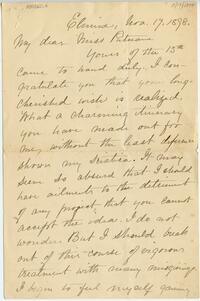 Elmira, Nov. 17. 1898.
My dear Miss Putnam
Yours of the 15th
came to hand duly. I con-
gratulate you that your long
cherished wish is realized.
What a charming itinerary
you have made out for
me, without the least deference
shown my Sciatica. It may
seem so absurd that I should
have ailments to the detriment
of any project that you cannot
accept the idea. I do not
wonder. But I should break
out of this course of vigorous
treatment with many misgivings.
I begin to feel myself gaining